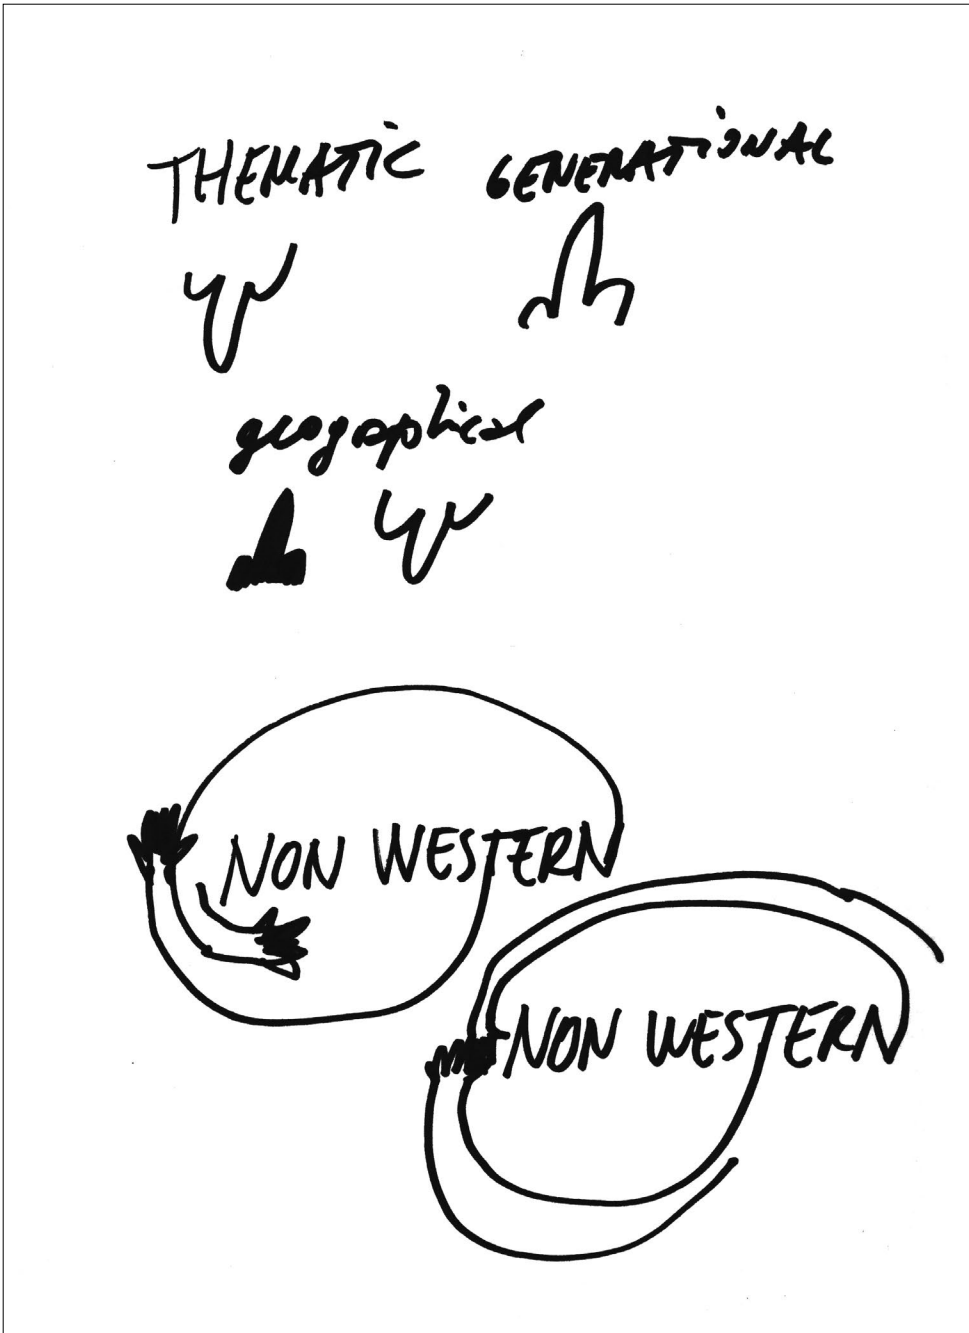 THEMATIC GENERATIONAL
geographical
NON WESTERN
NON WESTERN